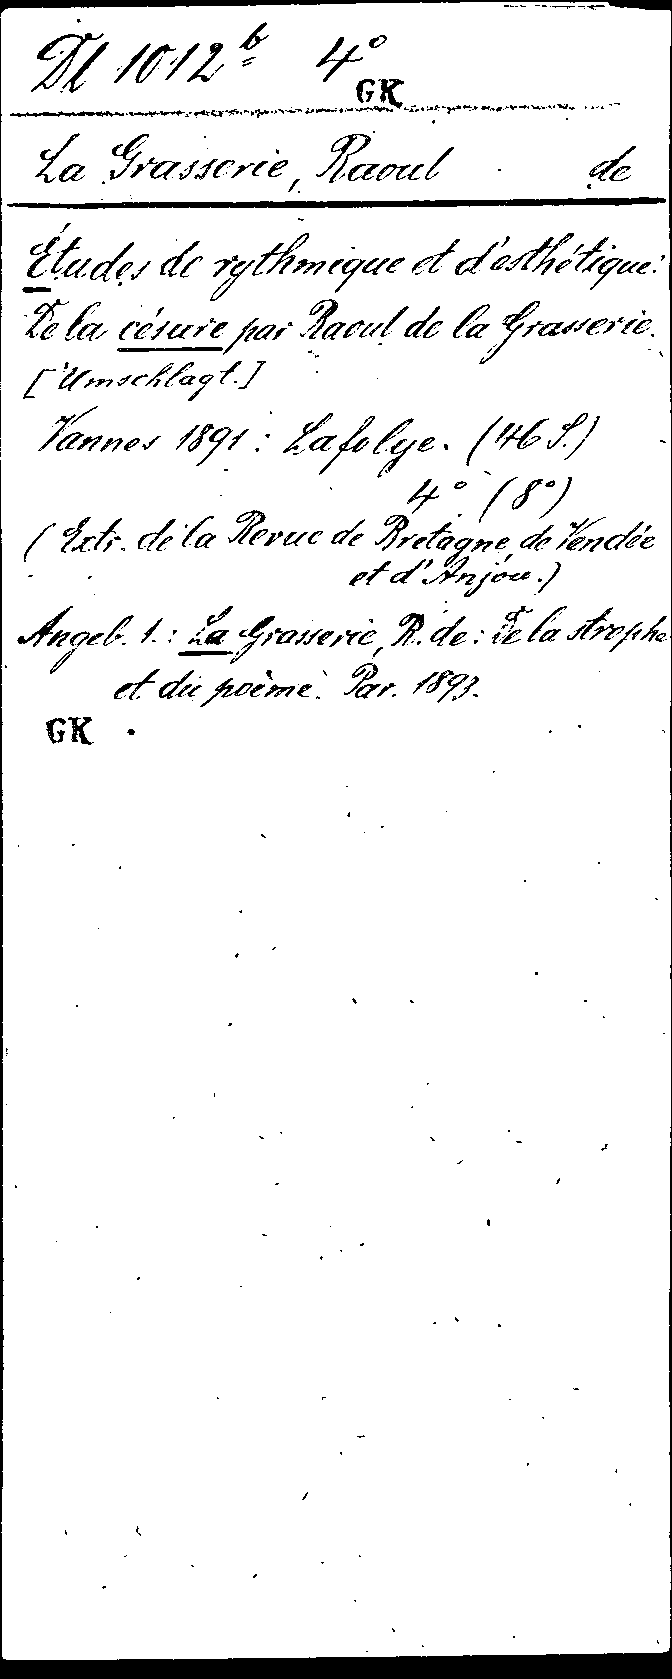 Dl 1012ᵇ 4°
GK
La Grasserie, Raoul de
Études de rythmique et d'esthétique.
De la césure par Raoul de la Grasserie.
[Umschlagt.]
Vannes 1891: Lafolye. (46 S.)
4° (8°)
(Extr. de la Revue de Bretagne, de Vendée
et d'Anjou.)
Angeb. 1.: La Grasserie, R. de: De la strophe
et du poème. Par. 1893.
GK